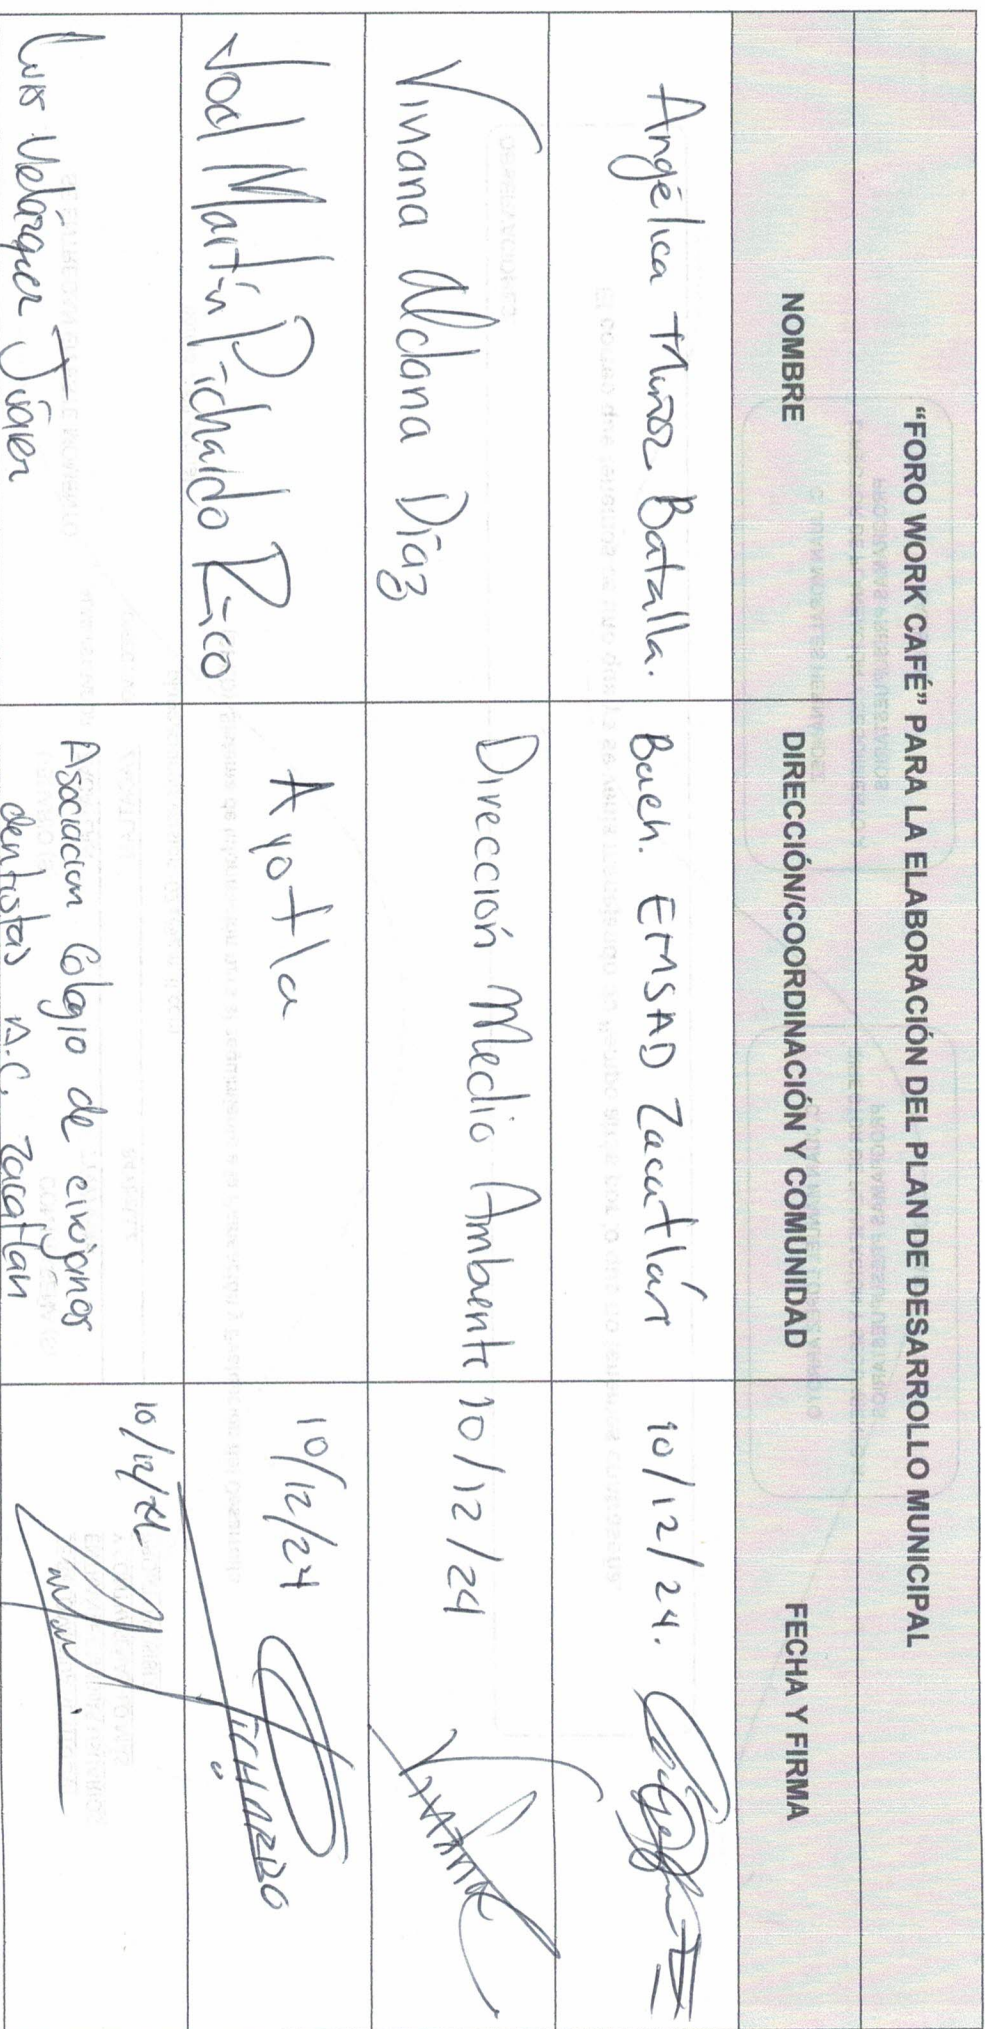 "FORO WORK CAFÉ" PARA LA ELABORACIÓN DEL PLAN DE DESARROLLO MUNICIPAL
NOMBRE DIRECCIÓN/COORDINACIÓN Y COMUNIDAD FECHA Y FIRMA
Angélica Muñoz Batalla. Bach. EMSAD Zacatlán 10/12/24.
Viviana Aldana Díaz Dirección Medio Ambiente 10/12/24
Joel Martín Pichardo Rico Ayotla 10/12/24 PICHARDO
Luis Velázquez Juárez Asociacion Colegio de cirujanos
dentistas A.C. Zacatlan 10/12/24